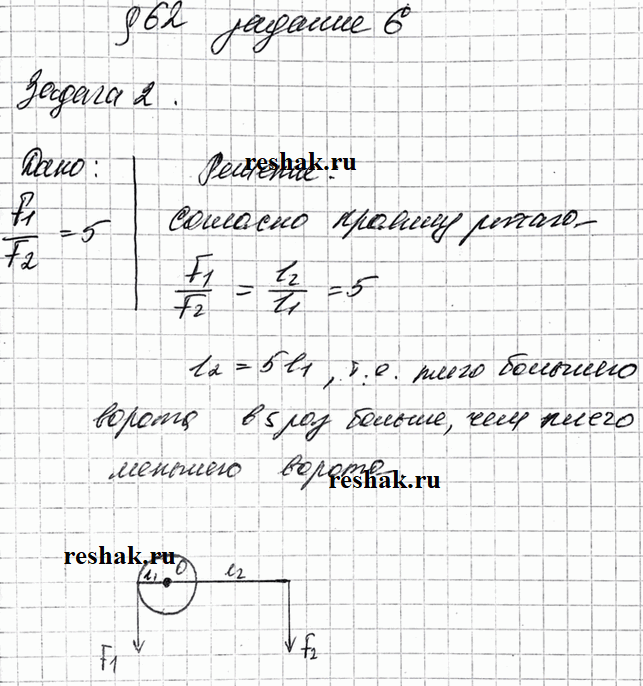 §62 задание 6
Задача 2.
Дано:
F1/F2 = 5
reshak.ru
Решение:
Согласно правилу рычага
F1/F2 = l2/l1 = 5
l2 = 5l1, т.е. плечо большего
ворота в 5 раз больше, чем плечо
меньшего ворота.
reshak.ru
reshak.ru
l1 O l2
F1 F2